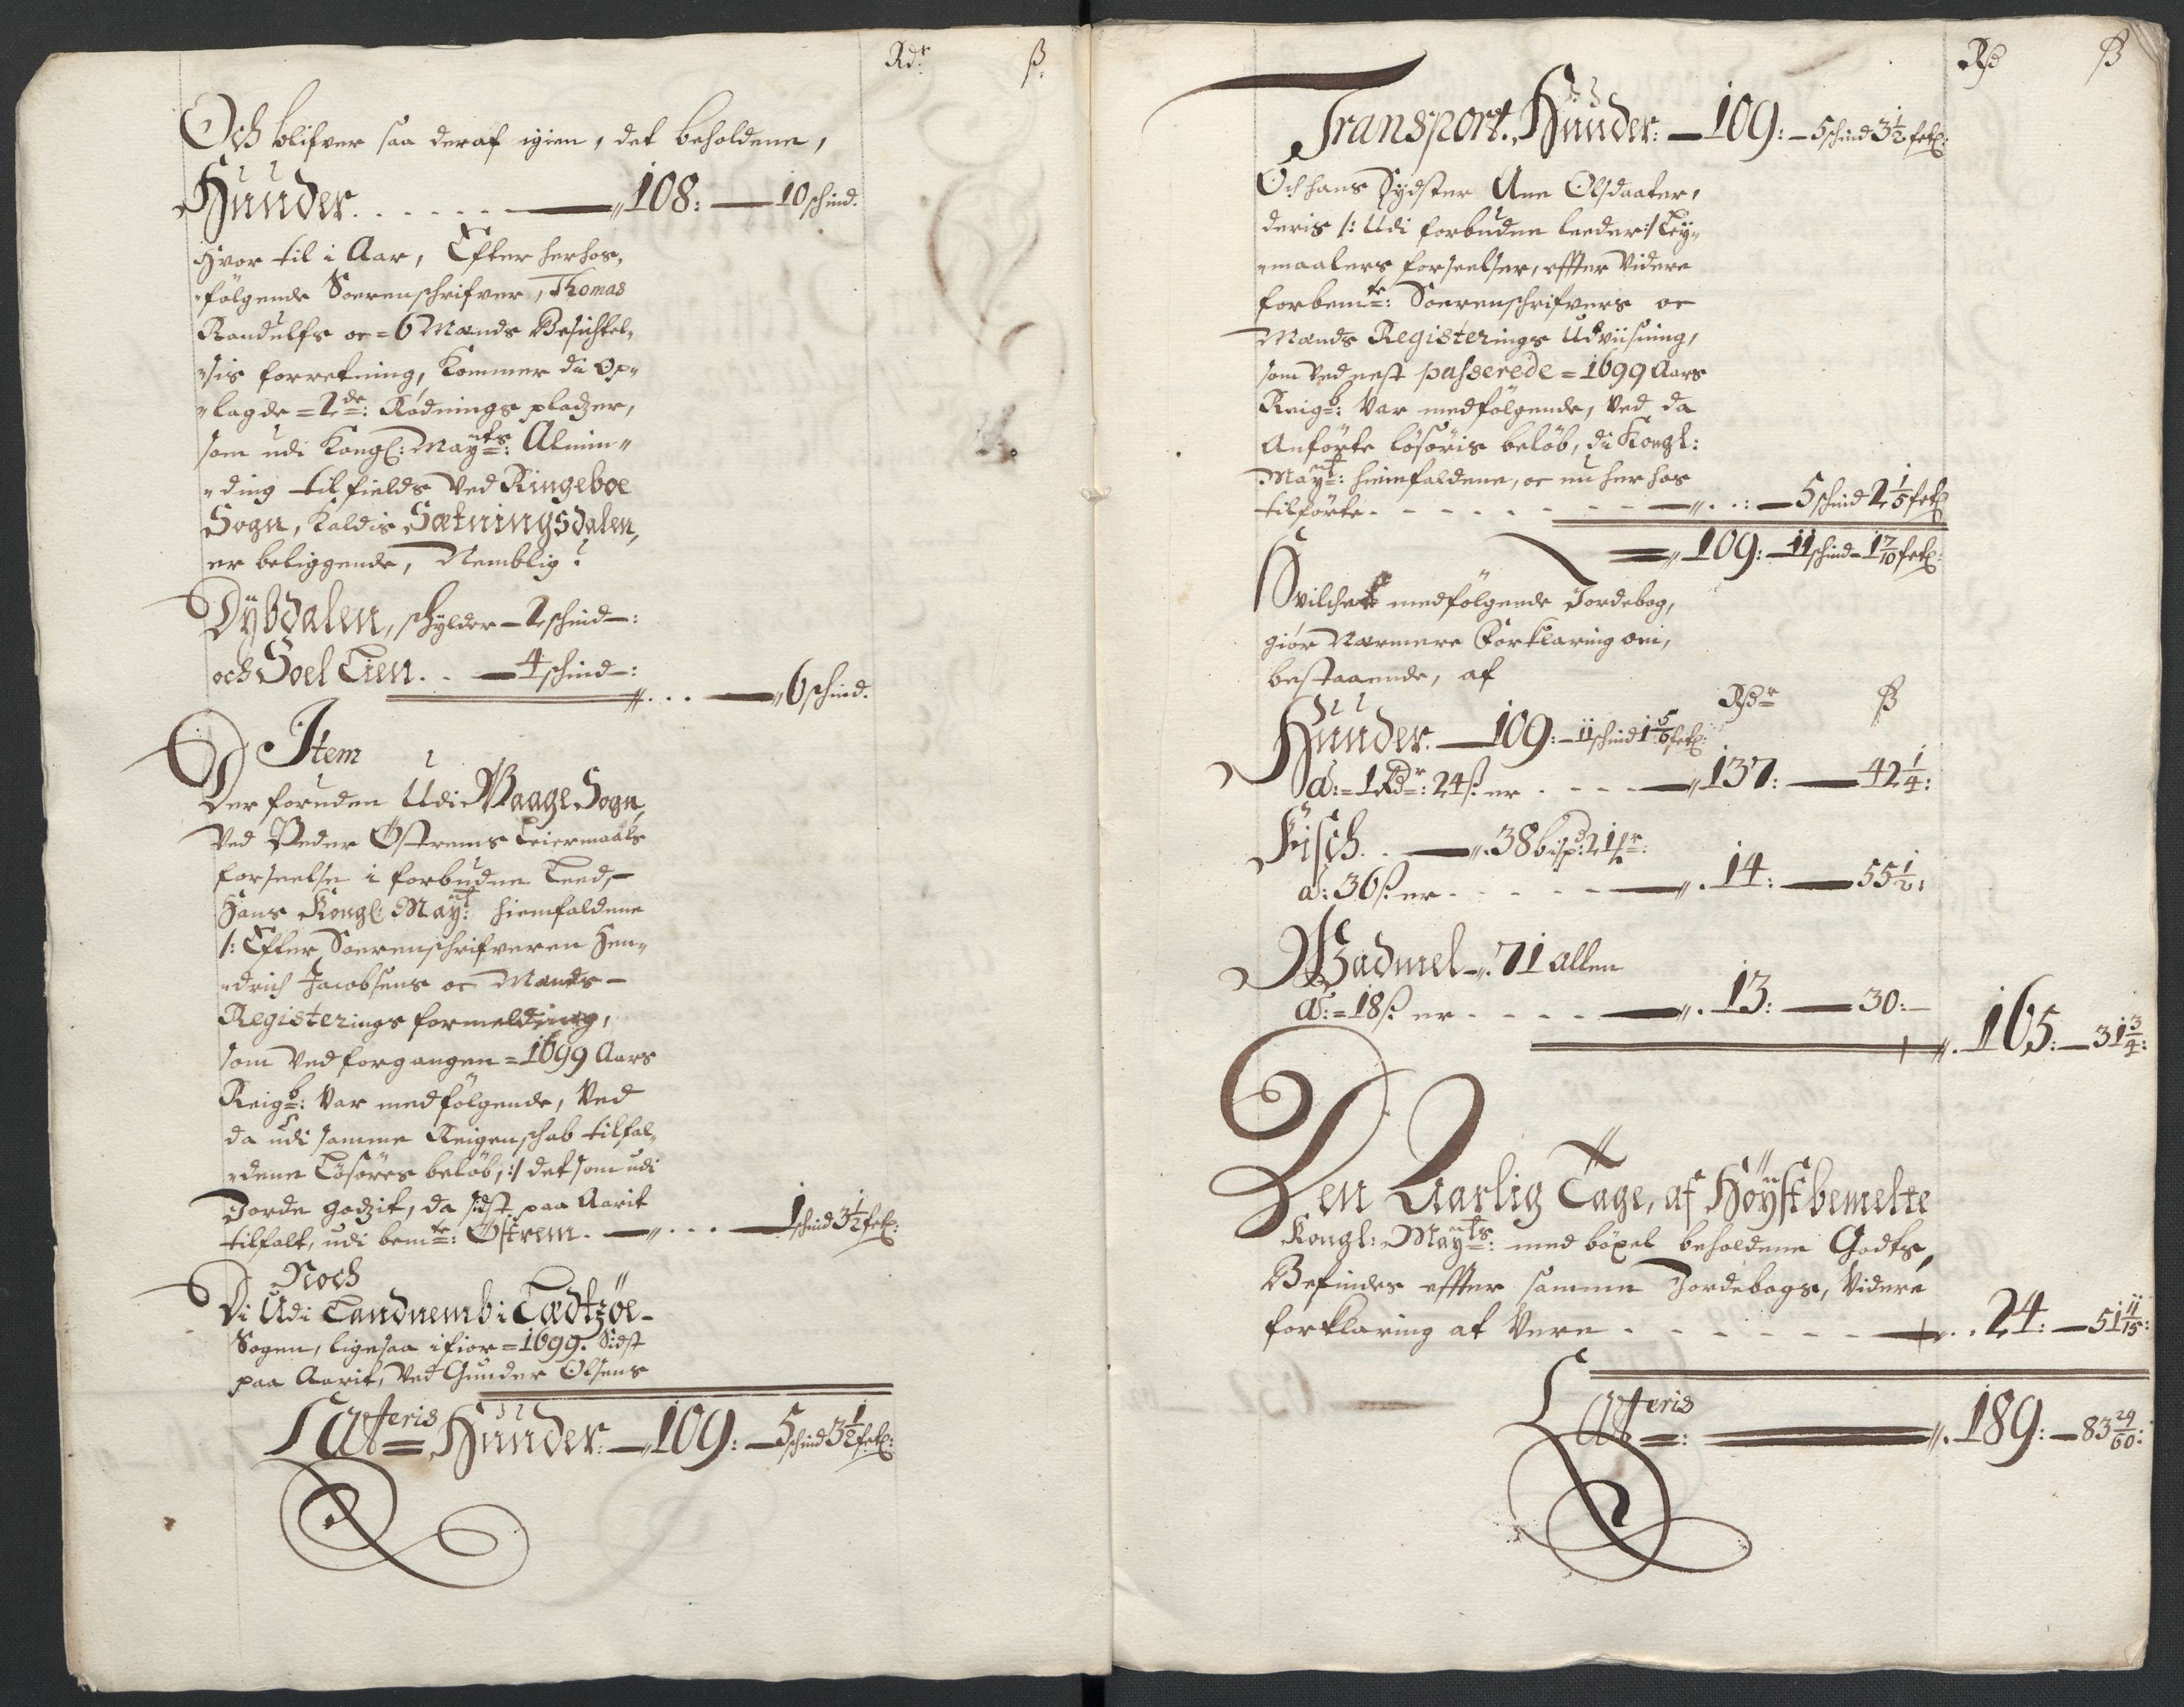 Rdr ß.
Och blifver saa deraf igien, det beholdene,
Hunder. . . . . . . 108: — 10 schind.
Hvor til i Aar, Efter herhos,
"følgende Sorenschrifver, Thomas
Randulfs oc = 6 Mænds Besichtel-
"sis forretning, Kommer di Op-
"lagde = 2de: Rødnings pladzer,
som udi Kongl: Mayts: Almin"
"ding til fields ved Ringeboe
Sogn, Kaldis Sætningsdalen,
er beliggende, Nemblig:
Dybdalen, schylder — 2 schind —:
och Soel Lien . . — 4 schind —:
. . . — 6 schind.
Item
Der foruden Udi Waage Sogn,
Ved Peder Østrems Leiermaals
forseelse i forbudne Leed, —
Hans Kongl: Mayt: hiemfaldene
/: Efter Sorenschrifveren Hen"
"drich Jacobsens oc Mænds —
Registerings formelding,
som ved forgangen = 1699 Aars
Reigb: var medfølgende, Ved
da udi samme Reigenschab tilfal-
"dene Løsøres beløb, :/ det som udi
Jorde godzit, da sidst paa Aarit
tilfalt, udi bemte: Østrem. — . . . — 1 schind 3 1/2 setl:
Noch
Di Udi Landnemb i Lædtzøe —
Sogen, ligesaa i fior = 1699. Sidst
paa Aarit, Ved Gunder Olsens
Latteris Hunder: — 109: — 5 schind 3 1/2 fetl:
Rd ß
Transport. Hunder: — 109: — 5 schind 3 1/2 fetl:
Och hans Sydster Ane Olsdaater,
deris /: Udi forbuden leeder :/ Ley"
"maalers forseelser, effter Videre
forbemte: Sorenschrifvers oc
Mænds Registerings Udviisning,
som ved nest passerede = 1699 Aars
Reigb: var medfølgende, Ved da
Anførte løsøris beløb, di Kongl:
Mayt: hiemfaldene, oc nu her hos
tilførte. - - - - - - - . . : — 5 schind 2 1/5 fetl
109: — 11 schind — 1 7/10 fetl:
Hvilchet medfølgende Jordebog,
giør Nærmere Forklaring om,
bestaaende, af
Rdr ß
Hunder. — 109: — 11 schind 1 5/6 fetl:
á: = 1 Rdr: 24 ß. er . - - - 137: — 42 1/4:
Fisch . . — 38 bispd: 2 1/2 r:
á: 36 ß. er. - - - - - . 14: — 55 1/2:
Wadmel — 71 allen
á: = 18 ß. er - - - - . 13: — 30: —
. 165: — 31 3/4:
Den Aarlig Tage, af Høystbemelte
Kongl: Mayts: med böxel beholdene Godts,
Befindes effter samme Jordebogs, Videre
forklaring at Være - - - - - - - . . 24: — 51 11/15:
Latteris: . 189: — 83 29/60: